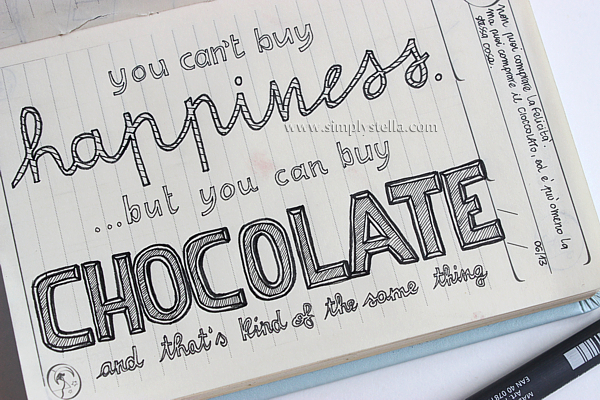 you can't buy
happiness.
...but you can buy
CHOCOLATE
and that's kind of the same thing
www.simplystella.com
non puoi comprare la felicità
ma puoi comprare il cioccolato, ed è più o meno la
stessa cosa.
06/13
EAN 40 078